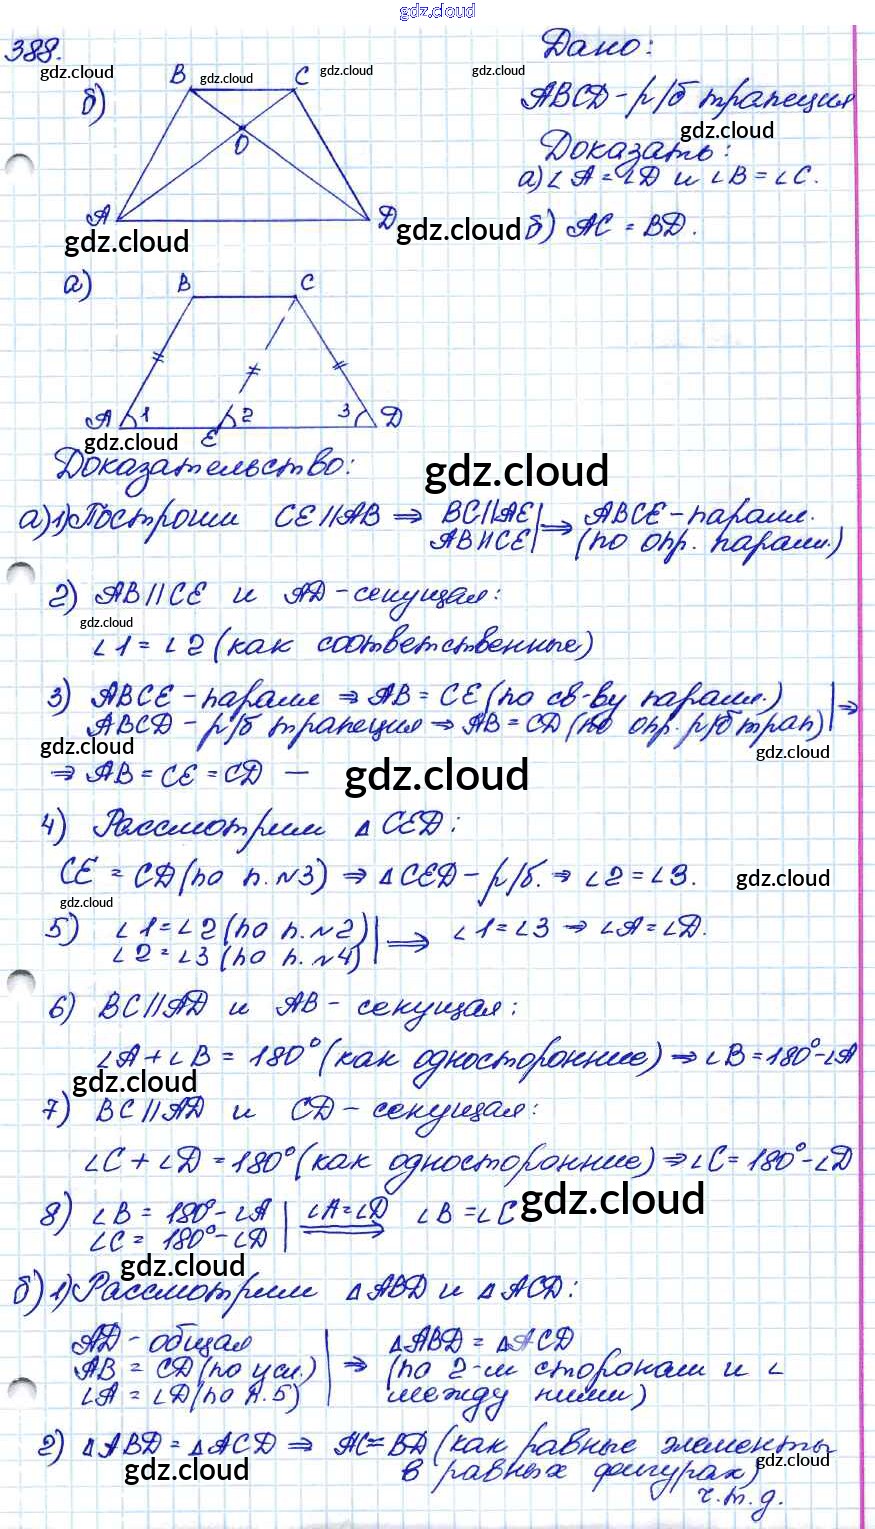 gdz.cloud
388.
Дано:
gdz.cloud
gdz.cloud
gdz.cloud
gdz.cloud
б)
B
C
O
A
D
ABCD - р/б трапеция
gdz.cloud
Доказать:
а) ∠A = ∠D и ∠B = ∠C.
gdz.cloud
gdz.cloud
б) AC = BD.
а)
B
C
A
1
E
2
3
D
gdz.cloud
Доказательство:
gdz.cloud
а) 1) Построим CE || AB ⇒ BC || AE | ⇒ ABCE - парал.
AB || CE | (по опр. парал.)
2) AB || CE и AD - секущая:
gdz.cloud
∠1 = ∠2 (как соответственные)
3) ABCE - парал ⇒ AB = CE (по св-ву парал.) | ⇒
ABCD - р/б трапеция ⇒ AB = CD (по опр. р/б трап) |
gdz.cloud
gdz.cloud
⇒ AB = CE = CD —
gdz.cloud
4) Рассмотрим △ CED:
CE = CD (по п. №3) ⇒ △ CED - р/б. ⇒ ∠2 = ∠3.
gdz.cloud
gdz.cloud
5) ∠1 = ∠2 (по п. №2) | ⇒ ∠1 = ∠3 ⇒ ∠A = ∠D.
∠2 = ∠3 (по п. №4) |
6) BC || AD и AB - секущая:
∠A + ∠B = 180° (как односторонние) ⇒ ∠B = 180° - ∠A
gdz.cloud
7) BC || AD и CD - секущая:
∠C + ∠D = 180° (как односторонние) ⇒ ∠C = 180° - ∠D
8) ∠B = 180° - ∠A | ∠A = ∠D ⇒ ∠B = ∠C
∠C = 180° - ∠D |
gdz.cloud
gdz.cloud
б) 1) Рассмотрим △ ABD и △ ACD:
AD - общая | △ ABD = △ ACD
AB = CD (по усл.) | ⇒ (по 2-м сторонам и ∠
∠A = ∠D (по п. 5) | между ними)
2) △ ABD = △ ACD ⇒ AC = BD (как равные элементы
в равных фигурах)
gdz.cloud
gdz.cloud
ч.т.д.